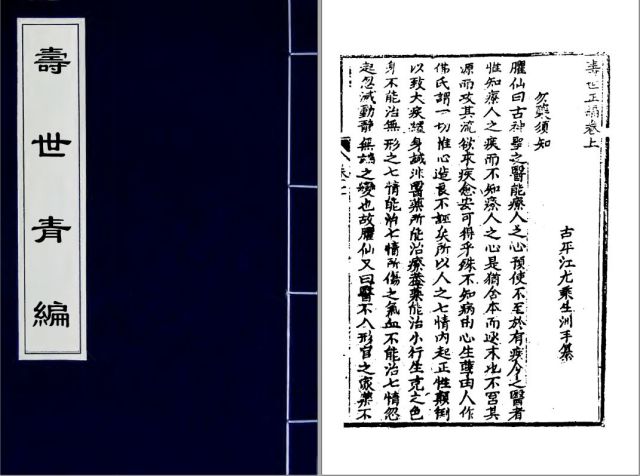 壽世青編
壽世正編卷上
古平江尤乘生洲手纂
勿藥須知
臞仙曰古神聖之醫能療人之心預使不至於有疾今之醫者
惟知療人之疾而不知療人之心是猶舍本而逐末也不窮其
源而攻其流欲求疾愈安可得乎殊不知病由心生孽由人作
佛氏謂一切惟心造良不誣矣所以人之七情內起正性顛倒
以致大疾纏身誠非醫藥所能治療蓋藥能治行生克之色
身不能治無形之七情能治七情所傷之氣血不能治七情忽
起忽滅動靜無端之變也故臞仙又曰醫不入形官之家藥不